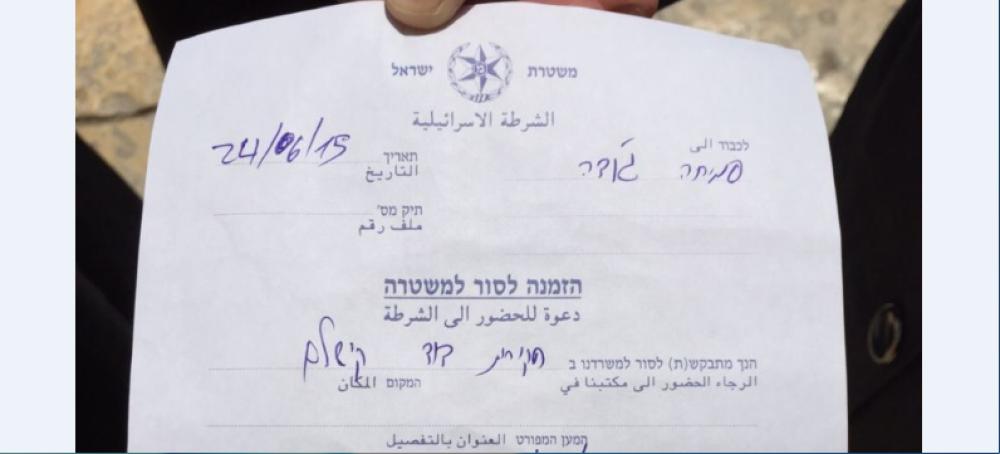 משטרת ישראל
الشرطة الاسرائيلية
לכבוד الى
סמיחה ג'ודה
תאריך 24/06/15
التاريخ
תיק מס'
ملف رقم
הזמנה לסור למשטרה
دعوة للحضور الى الشرطة
הנך מתבקש(ת) לסור למשרדנו ב חקירות דוד
الرجاء الحضور الى مكتبنا في המקום المكان
המען המפורט العنوان بالتفصيل